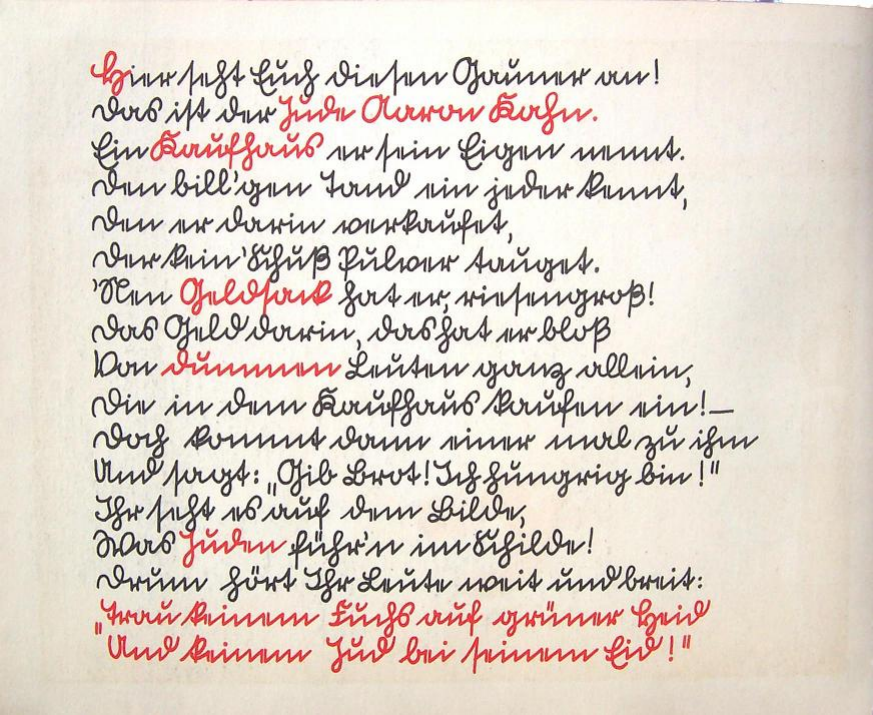 Hier seht Euch diesen Gauner an!
Das ist der Jude Aaron Kahn.
Ein Kaufhaus er sein Eigen nennt.
Den bill'gen Tand ein jeder kennt,
Den er darin verkaufet,
Der kein' Schuß Pulver tauget.
'Nen Geldsack hat er, riesengroß!
Das Geld darin, das hat er bloß
Von dummen Leuten ganz allein,
Die in dem Kaufhaus kaufen ein!—
Doch kommt dann einer mal zu ihm
Und sagt: „Gib Brot! Ich hungrig bin!"
Ihr seht es auf dem Bilde,
Was Juden führ'n im Schilde!
Drum hört Ihr Leute weit und breit:
„Trau keinem Fuchs auf grüner Heid
Und keinem Jud bei seinem Eid!"